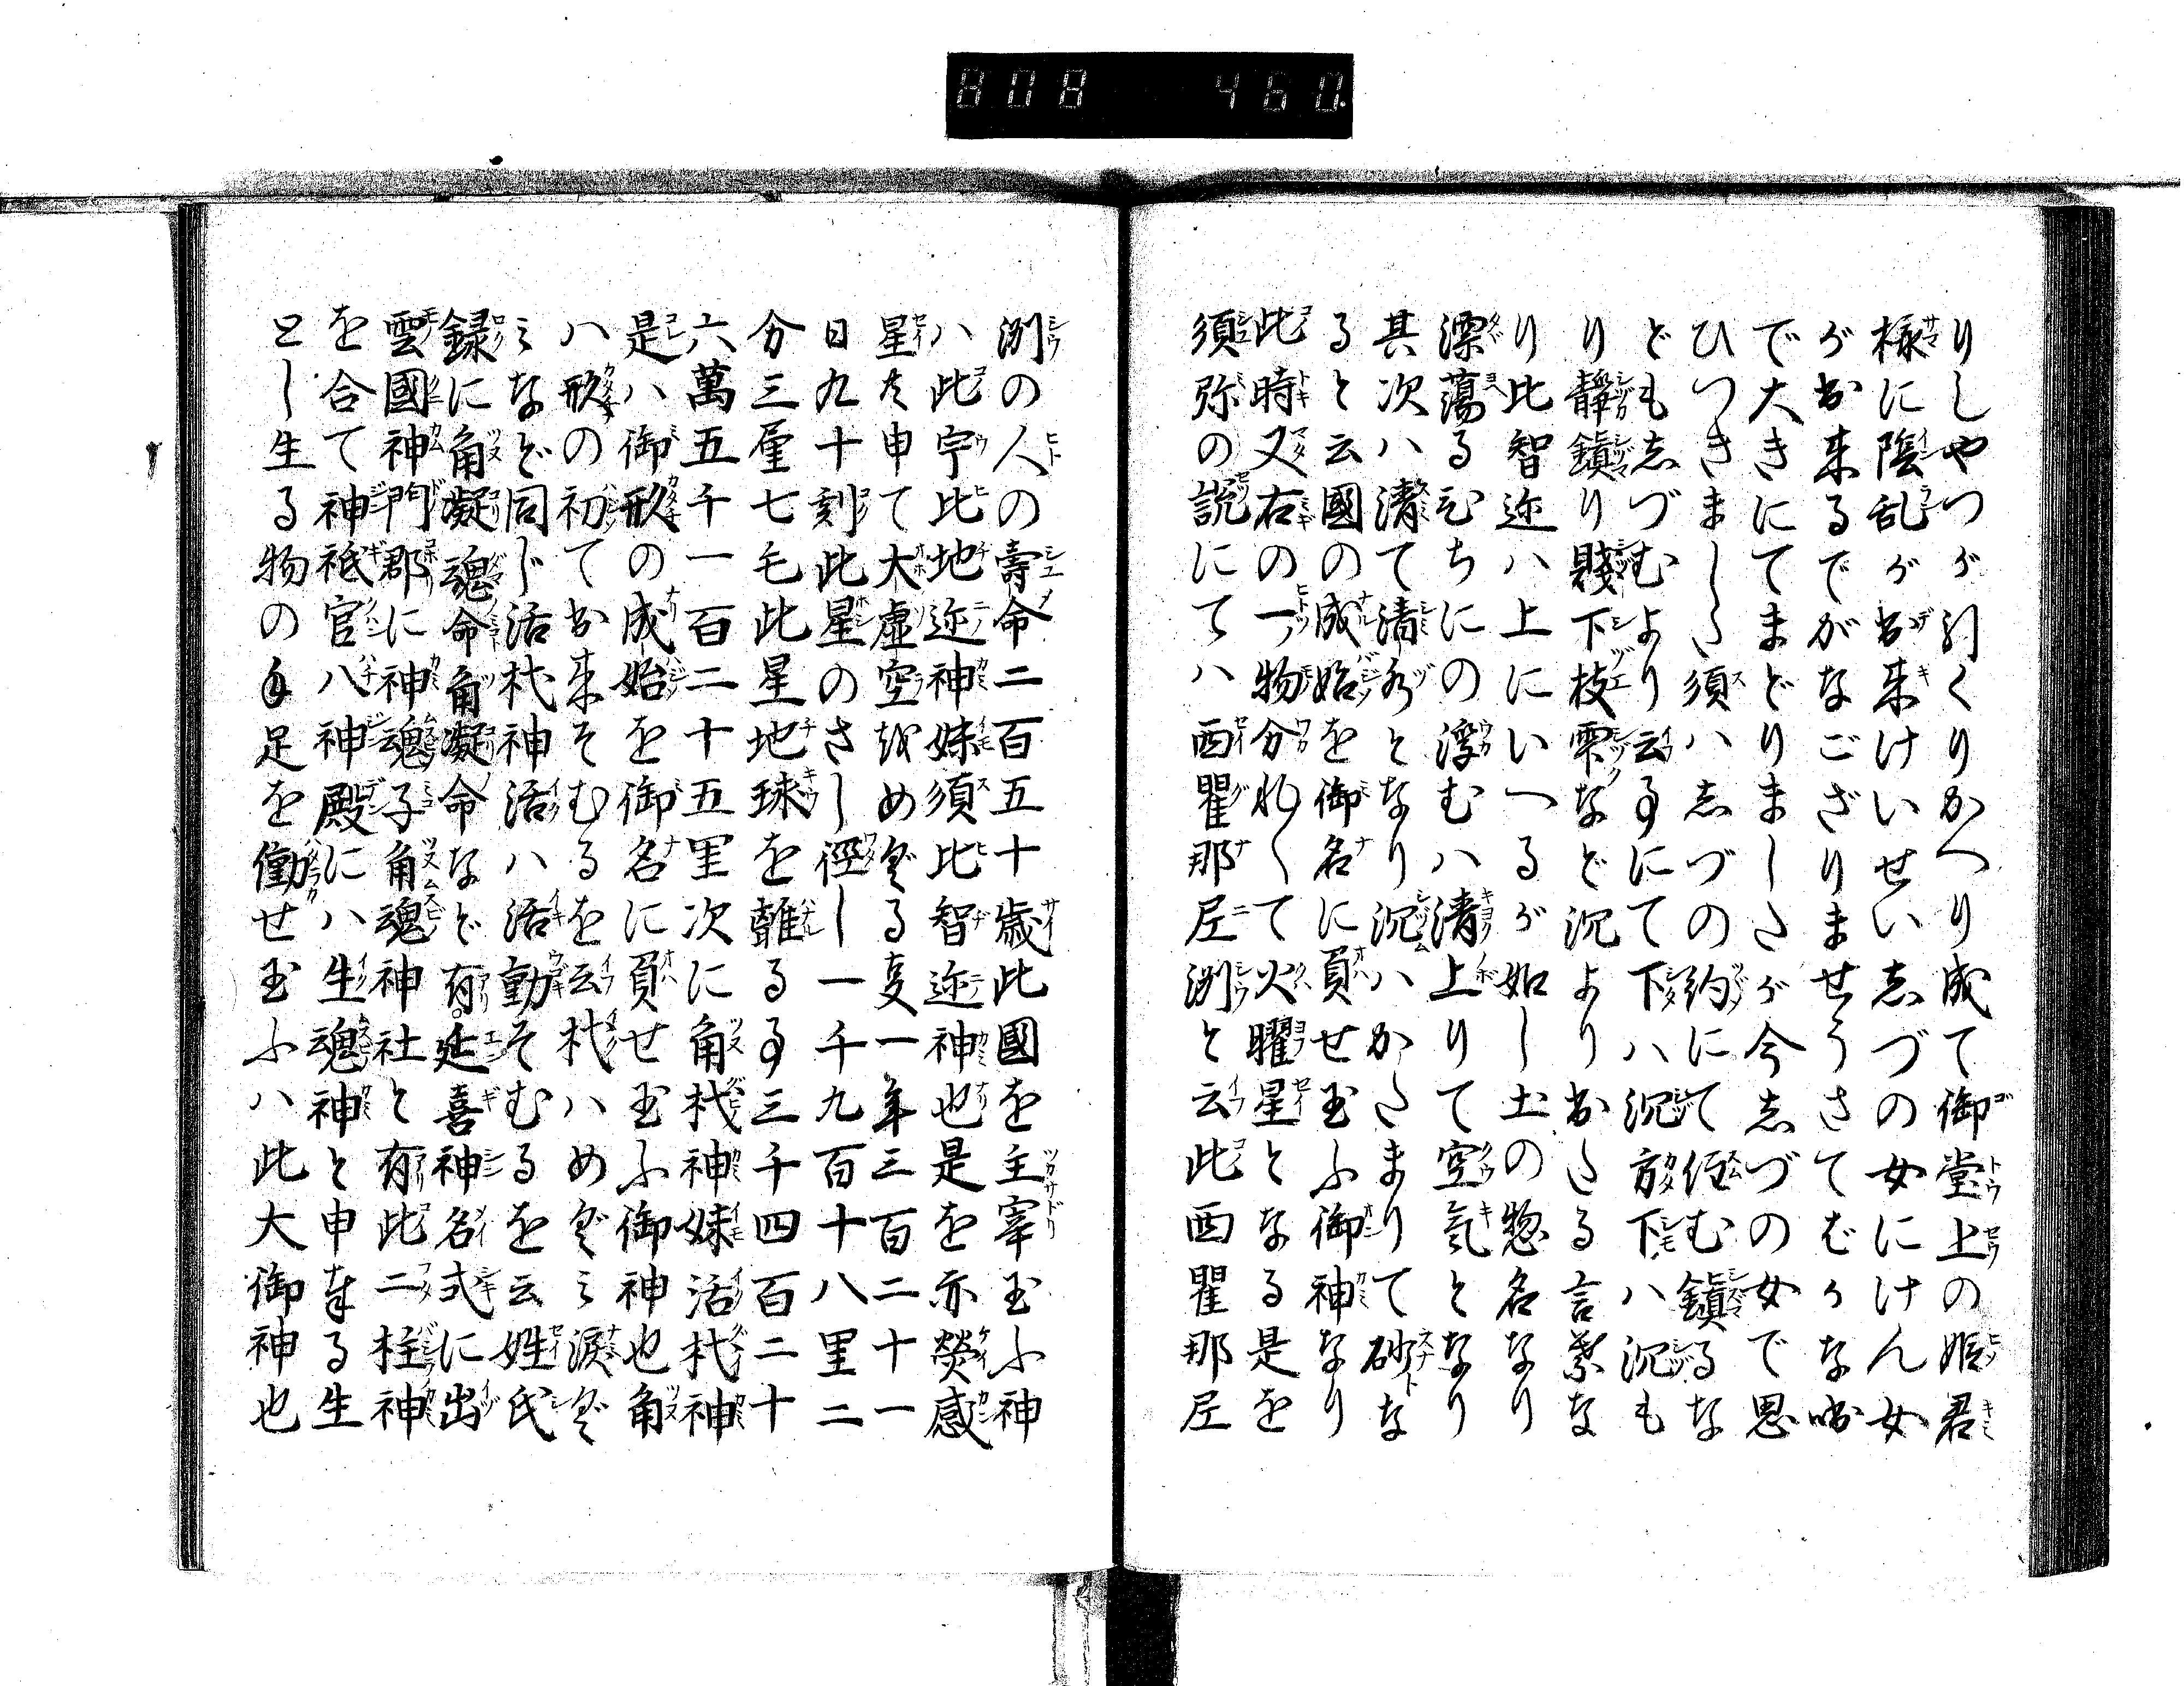 808 460.
りしやつが引くりかへり成て御堂上の姫君
様に陰乱が出来けいせい志づの女にけん女
が出来るでがなござりませうさてむかな昔
で大きにてまどりましたが今志づの女で思
ひつきました須ハ志づの約にて径む鎭るな
ども志づむより云事にて下ハ沉方下ハ沉も
り靜鎭り賤下枝雫など沉より出たる言葉な
り比智迩ハ上にいへるが如し土の惣名なり
漂蕩るひちにの浮むハ清上りて空氣となり
其次ハ清て清水となり沉ハかたまりて砂な
ると云國の成始を御名に負せ玉ふ御神なり
此時又右の一物分れて火曜星となる是を
須弥の説にてハ西瞿那尼洲と云此西瞿那尼
洲の人の壽命二百五十歳此國を主宰玉ふ神
ハ此宇比地迩神妹須比智迩神也是を亦熒惑
星共申て大虚空或めぐる叓一年三百二十一
日九十刻此星のさし徑し一千九百十八里二
分三厘七毛此星地球を離る事三千四百二十
六萬五千一百二十五里次に角杙神妹活杙神
是ハ御形の成始を御名に負せ玉ふ御神也角
ハ形の初て出来そむるを云杙ハめぐミ涙ぐ
ミなど同じ活杙神活ハ活動そむるを云姓氏
録に角凝魂命角凝命など有延喜神名式に出
雲國神門郡に神魂子角魂神社と有此二柱神
を合て神祇官八神殿にハ生魂神と申奉る生
とし生る物の手足を働せ玉ふハ此大御神也